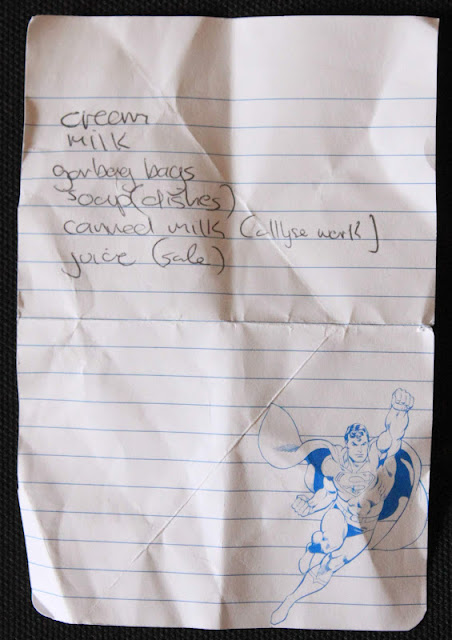 cream
milk
garbag bags
soap (dishes)
canned milk (allyse work]
juice (sale)